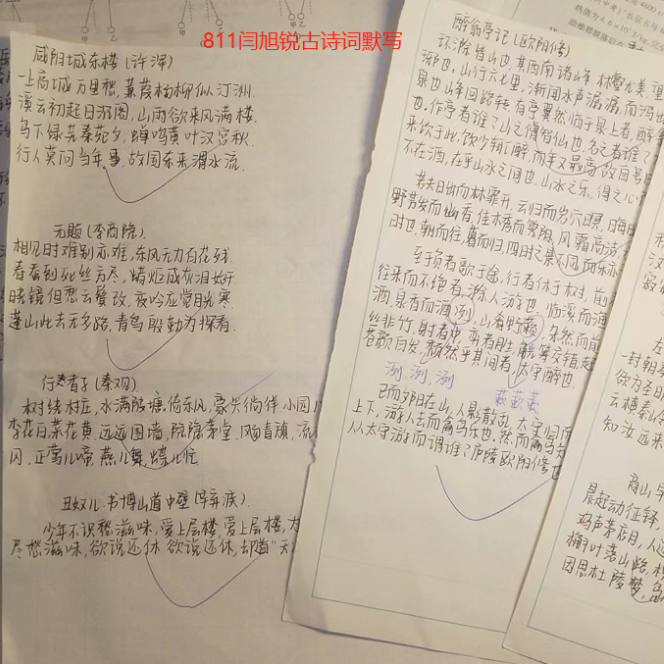 811闫旭锐古诗词默写
咸阳城东楼(许浑)
一上高城万里愁,蒹葭杨柳似汀洲.
溪云初起日沉阁,山雨欲来风满楼.
鸟下绿芜秦苑夕,蝉鸣黄叶汉宫秋.
行人莫问当年事,故国东来渭水流.
无题(李商隐)
相见时难别亦难,东风无力百花残.
春蚕到死丝方尽,蜡炬成灰泪始干
晓镜但愁云鬓改,夜吟应觉月光寒
蓬山此去无多路,青鸟殷勤为探看.
行香子(秦观)
树绕村庄,水满陂塘.倚东风,豪兴徜徉.小园几
李花白菜花黄.远远围墙,隐隐茅堂.风青旗,流
闪.正莺儿啼,燕儿舞,蝶儿忙.
丑奴儿·书博山道中壁(辛弃疾)
少年不识愁滋味,爱上层楼,爱上层楼,为
尽愁滋味,欲说还休.欲说还休,却道"天
醉翁亭记(欧阳修)
环滁皆山也.其西南诸峰,林壑尤美,望
琊也.山行六七里,渐闻水声潺潺,而泻出
泉也.峰回路转,有亭翼然临于泉上者,醉
也.作亭者谁?山之僧智仙也.名之者谁?
来饮于此,饮少辄醉,而年又最高,故自号曰
不在酒,在乎山水之间也.山水之乐,得之心
若夫日出而林霏开,云归而岩穴暝,晦明
野芳发而幽香,佳木秀而繁阴,风霜高洁,
时也.朝而往,暮而归,四时之景不同,而乐亦
至于负者歌于途,行者休于树,前
往来而不绝者,滁人游也.临溪而渔
酒,泉香而酒洌,山肴野蔌,杂然而前
丝非竹,射者中,弈者胜,觥筹交错,起
苍颜白发,颓然乎其间者,太守醉也
洌,洌,洌
蔌蔌蔌
已而夕阳在山,人影散乱,太守归而
上下,游人去而禽鸟乐也.然而禽鸟知
人从太守游而
谓谁?庐陵欧阳修也
一封朝
欲为圣
云横秦岭
知汝远来
商山早
晨起动征铎,
鸡声茅店月,人迹
槲叶落山路,枳
因思杜陵梦,凫